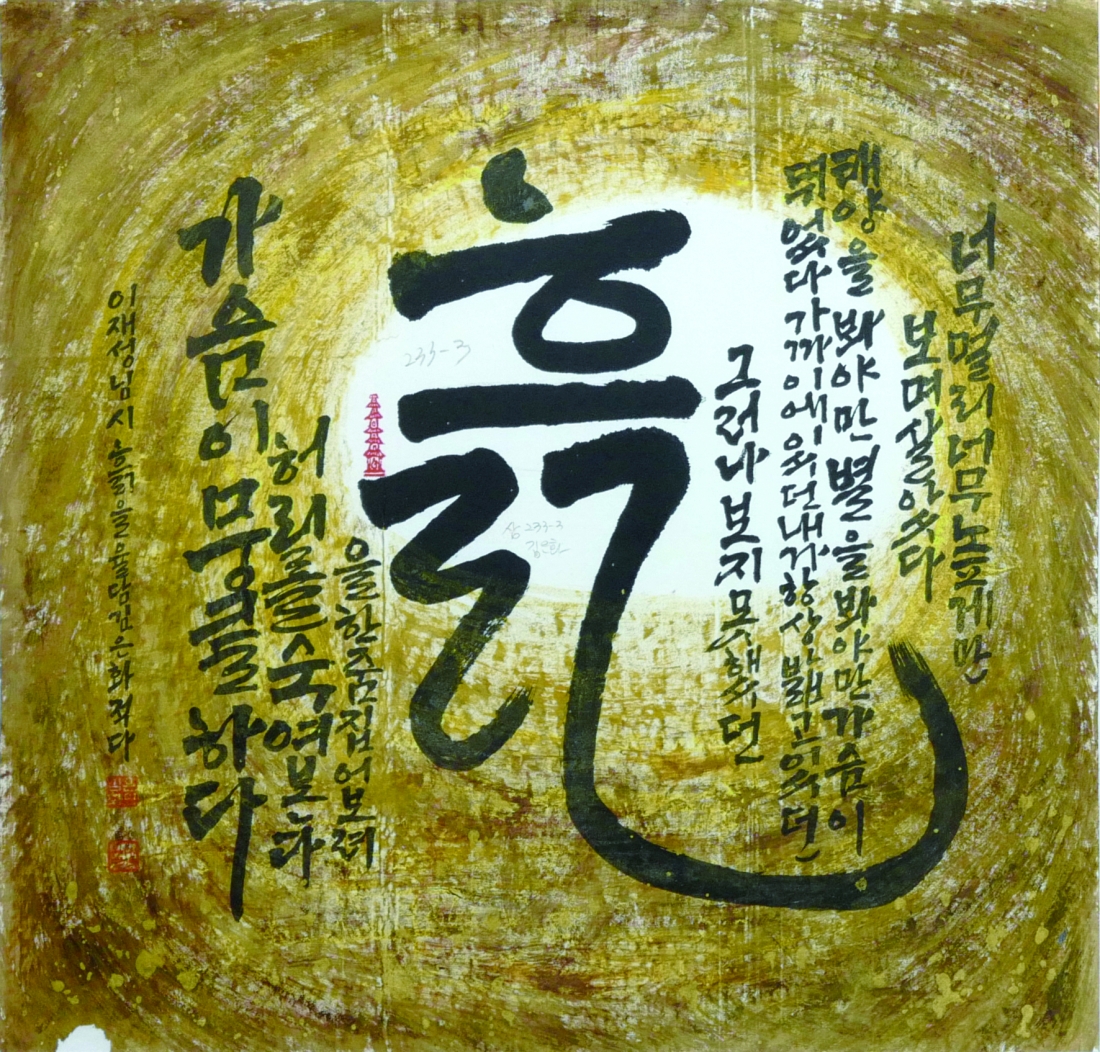 너무멀리너무높게만
보며살아왔다
태양을봐야만별을봐야만가슴이
뛰었다가까이에있던내가항상밟고있던
그러나보지못했던
흙
233-3
233-3
김은화
을한줌집어보려
허리를
가슴이뭉클하다
이재성님시 흙을 김은화적다